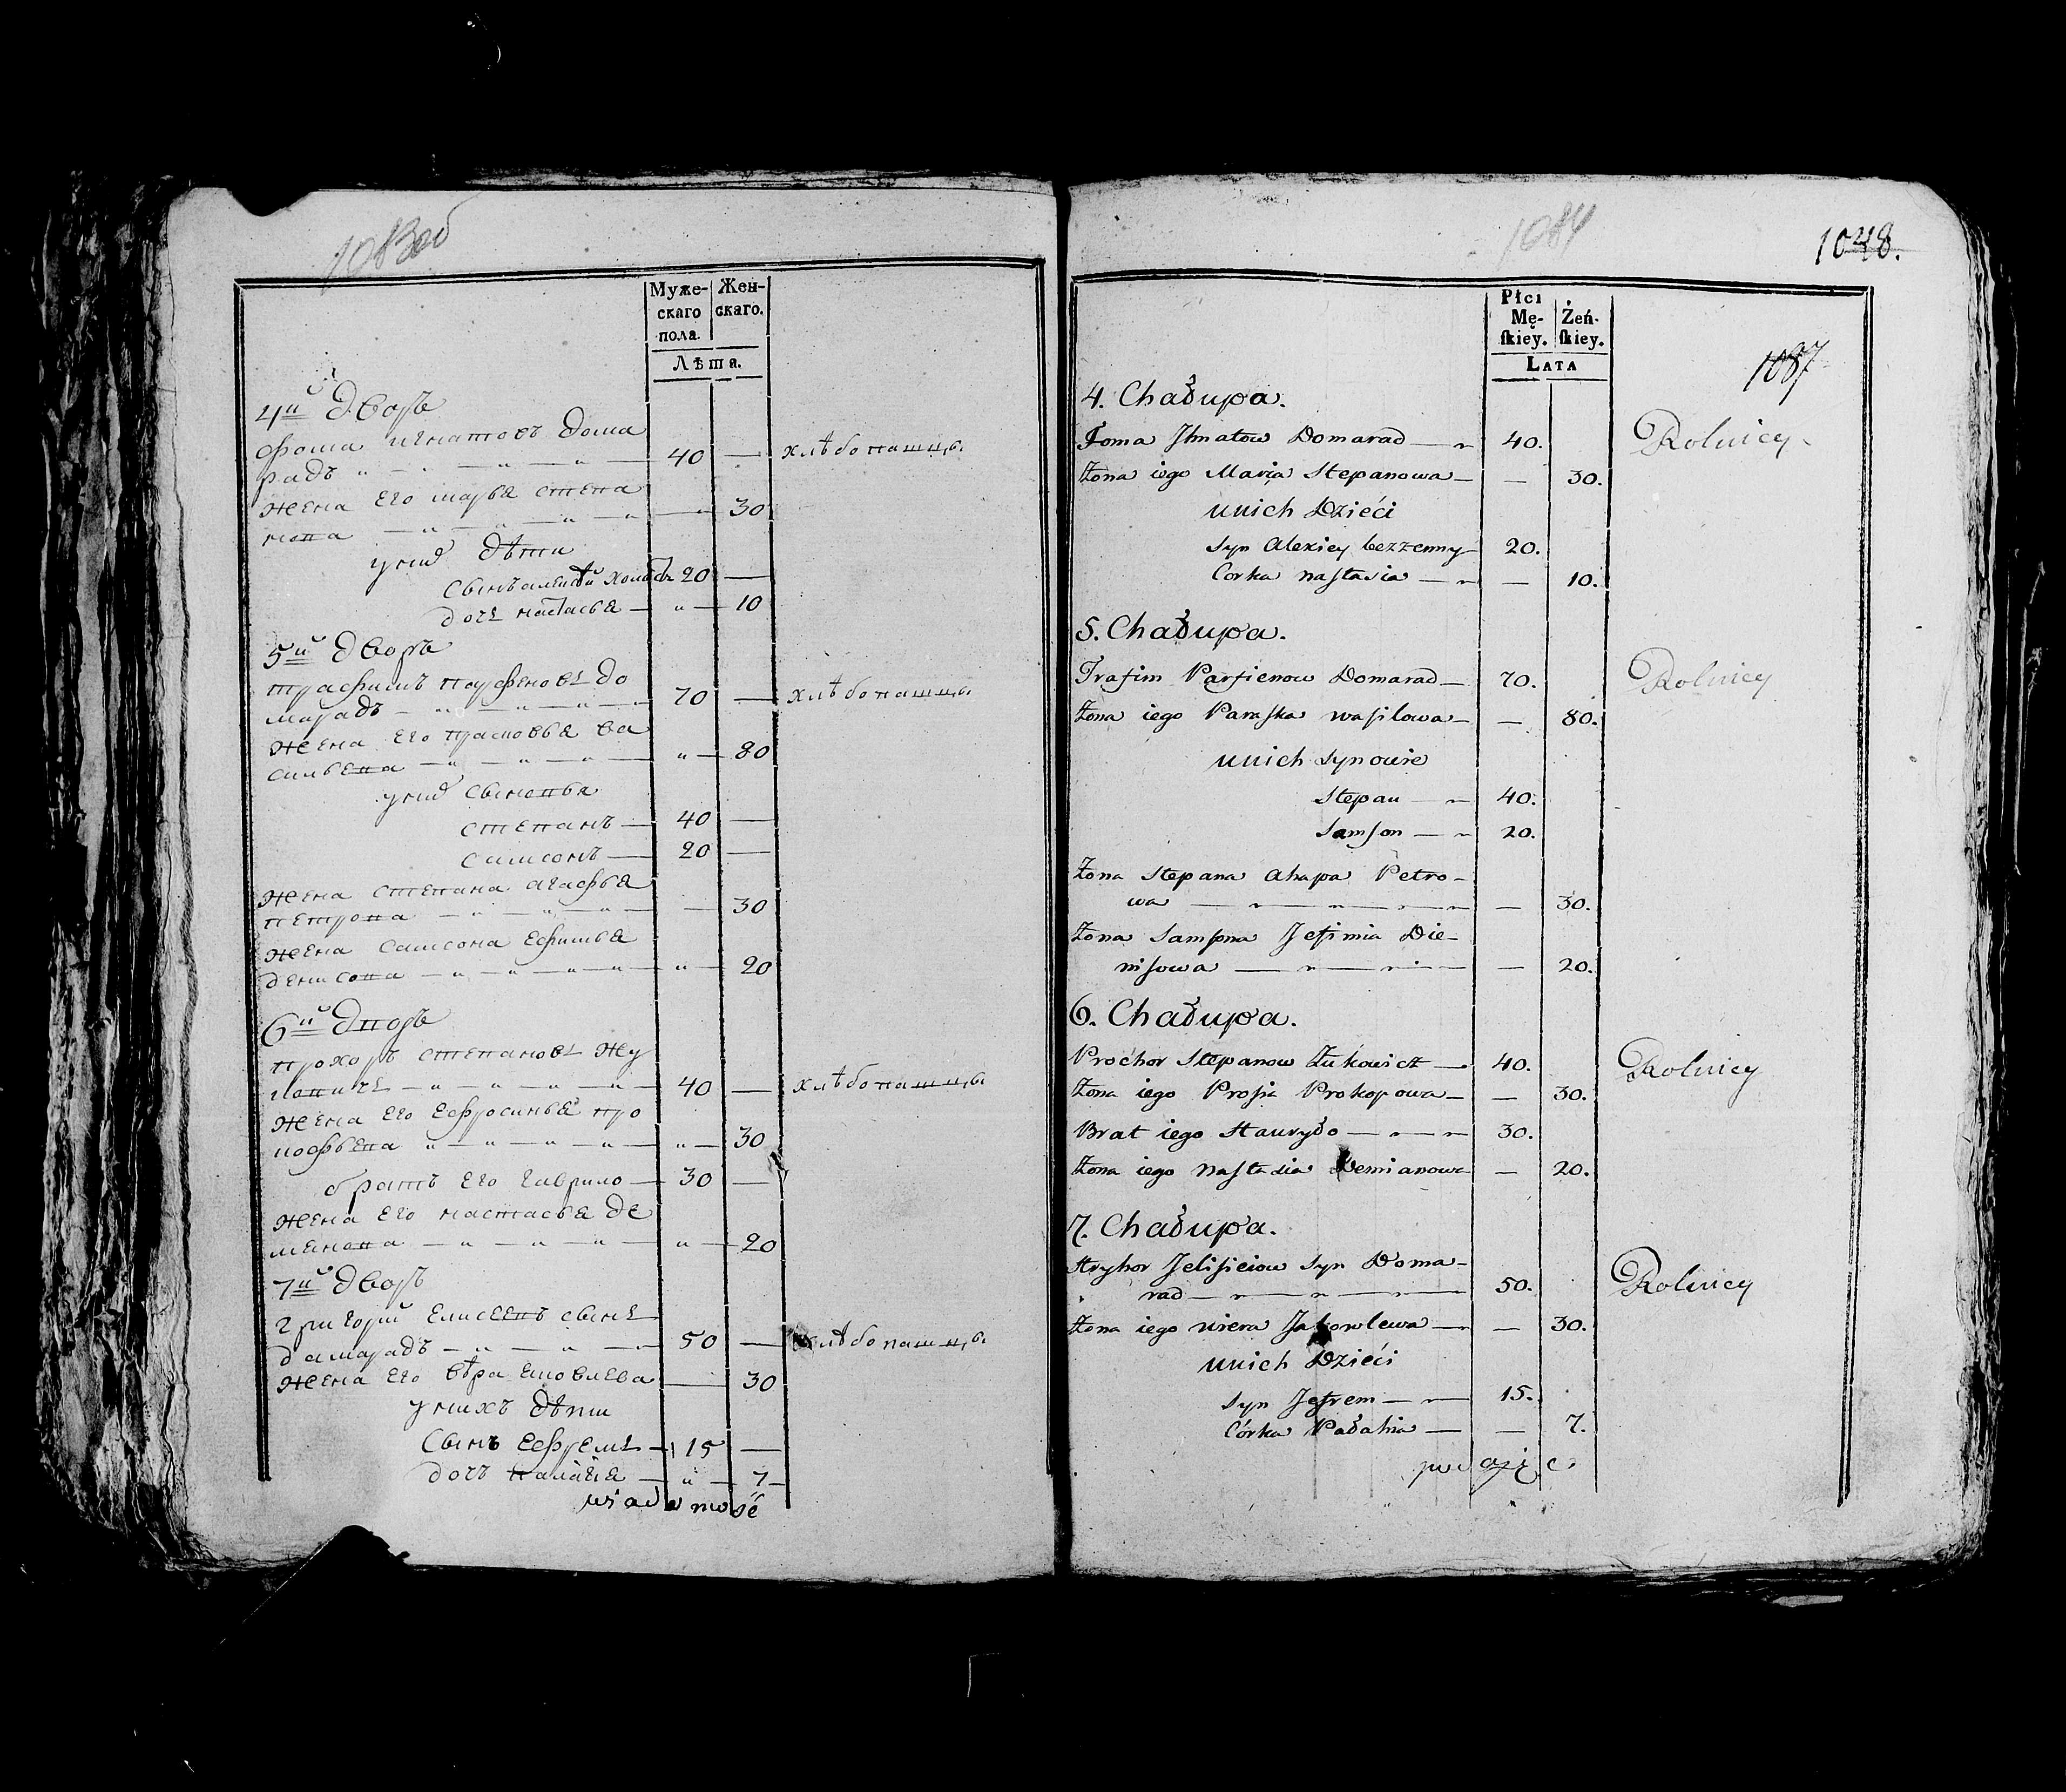 1083об
Муже-
скаго
пола.
Жен-
скаго.
Лѣта.
4й дворъ
Фома игнатовъ дома
радъ 40 — хлѣбопашцы
жена его марья степа
нова — 30
у них дѣти
сынъ алексѣй холостъ 20 —
дочь настасья — 10
5й дворъ
трафимъ парфеновъ до
марадъ 70 — хлѣбопашцы
жена его прасковья ва
сильева — 80
у них сыновья
степанъ — 40 —
самсонъ — 20 —
жена степана агафья
петрова — 30
жена самсона ефимья
денисова — 20
6й дворъ
прохоръ степановъ жу
ковичь 40 — хлѣбопашцы
жена его ефросинья про
кофьева — 30
братъ его гаврило — 30 —
жена его настасья де
менова — 20
7й дворъ
григорий елисеевъ сынъ
дамарадъ 50 — хлѣбопашцы
жена его вѣра яковлева — 30
у нихъ дѣти
сынъ ефремъ — 15 —
дочь палагея — 7
wiadomość
1084
1048.
1087
Płci
Mę-
skiey.
Żeń-
skiey.
Lata
4. Chałupa.
Foma Ihnatow Domarad — 40. Rolnicy
Żona iego Maria Stepanowa — — 30.
unich Dzieći
Syn Alexiey bezzenny 20.
Corka Nastasia — — 10.
5. Chałupa.
Trafim Parfienow Domarad — 70. Rolnicy
Żona iego Paraska Wasilowa — — 80.
unich Synowie
Stepan — 40.
Samson — 20.
Żona Stepana Ahapa Petro-
wa — — 30.
Żona Samsona Jefimia Die-
nisowa — — 20.
6. Chałupa.
Prochor Stepanow Żukowicz — 40. Rolnicy
Żona iego Prosia Prokopowa — — 30.
Brat iego Hauryło — 30.
Żona iego Nastasia Demianowa — 20.
7. Chałupa.
Hryhor Jelisieiow Syn Doma-
rad — 50. Rolnicy
Żona iego Wiera Jakowlewa — — 30.
unich Dzieći
Syn Jefrem — 15.
Córka Pałahia — — 7.